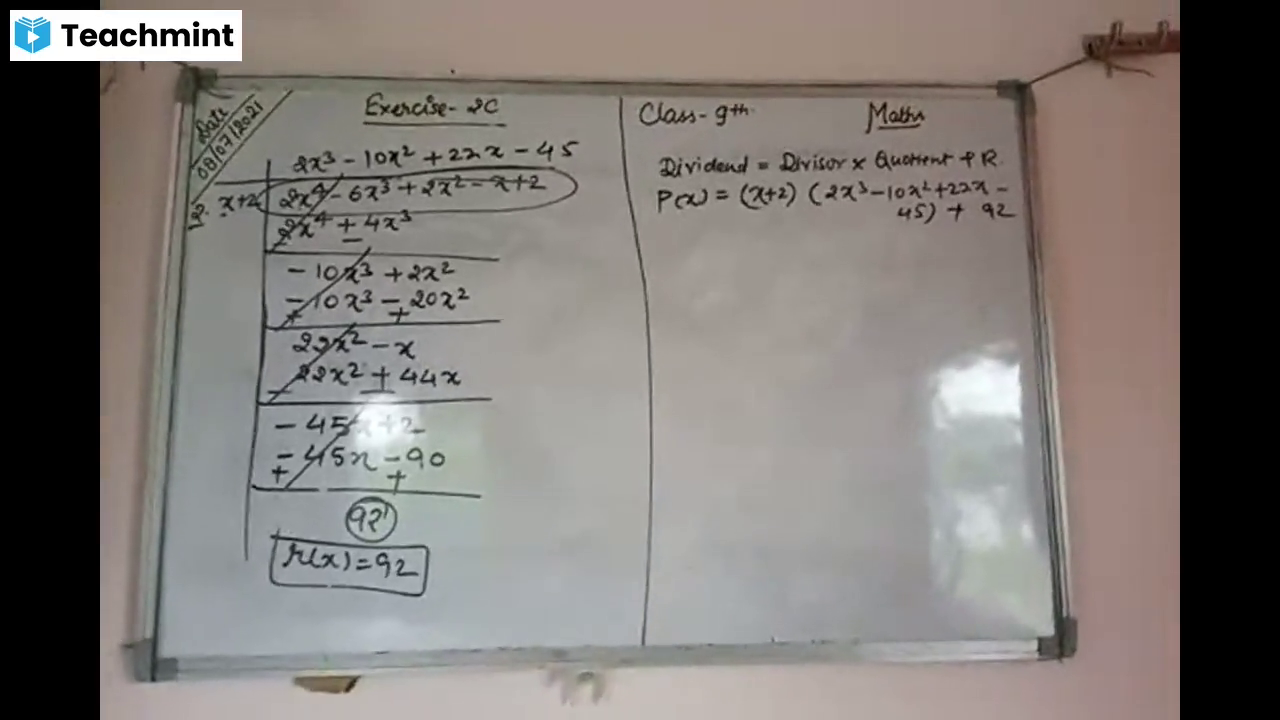 Teachmint
Date
08/07/2021
Exercise- 2C
2x³ - 10x² + 22x - 45
12. x+2
2x⁴ - 6x³ + 2x² - x + 2
2x⁴ + 4x³
- -
- 10x³ + 2x²
- 10x³ - 20x²
+ +
22x² - x
22x² + 44x
- -
- 45x + 2
- 45x - 90
+ +
92
r(x) = 92
Class- 9th Maths
Dividend = Divisor x Quotient + R.
P(x) = (x+2) (2x³ - 10x² + 22x -
45) + 92